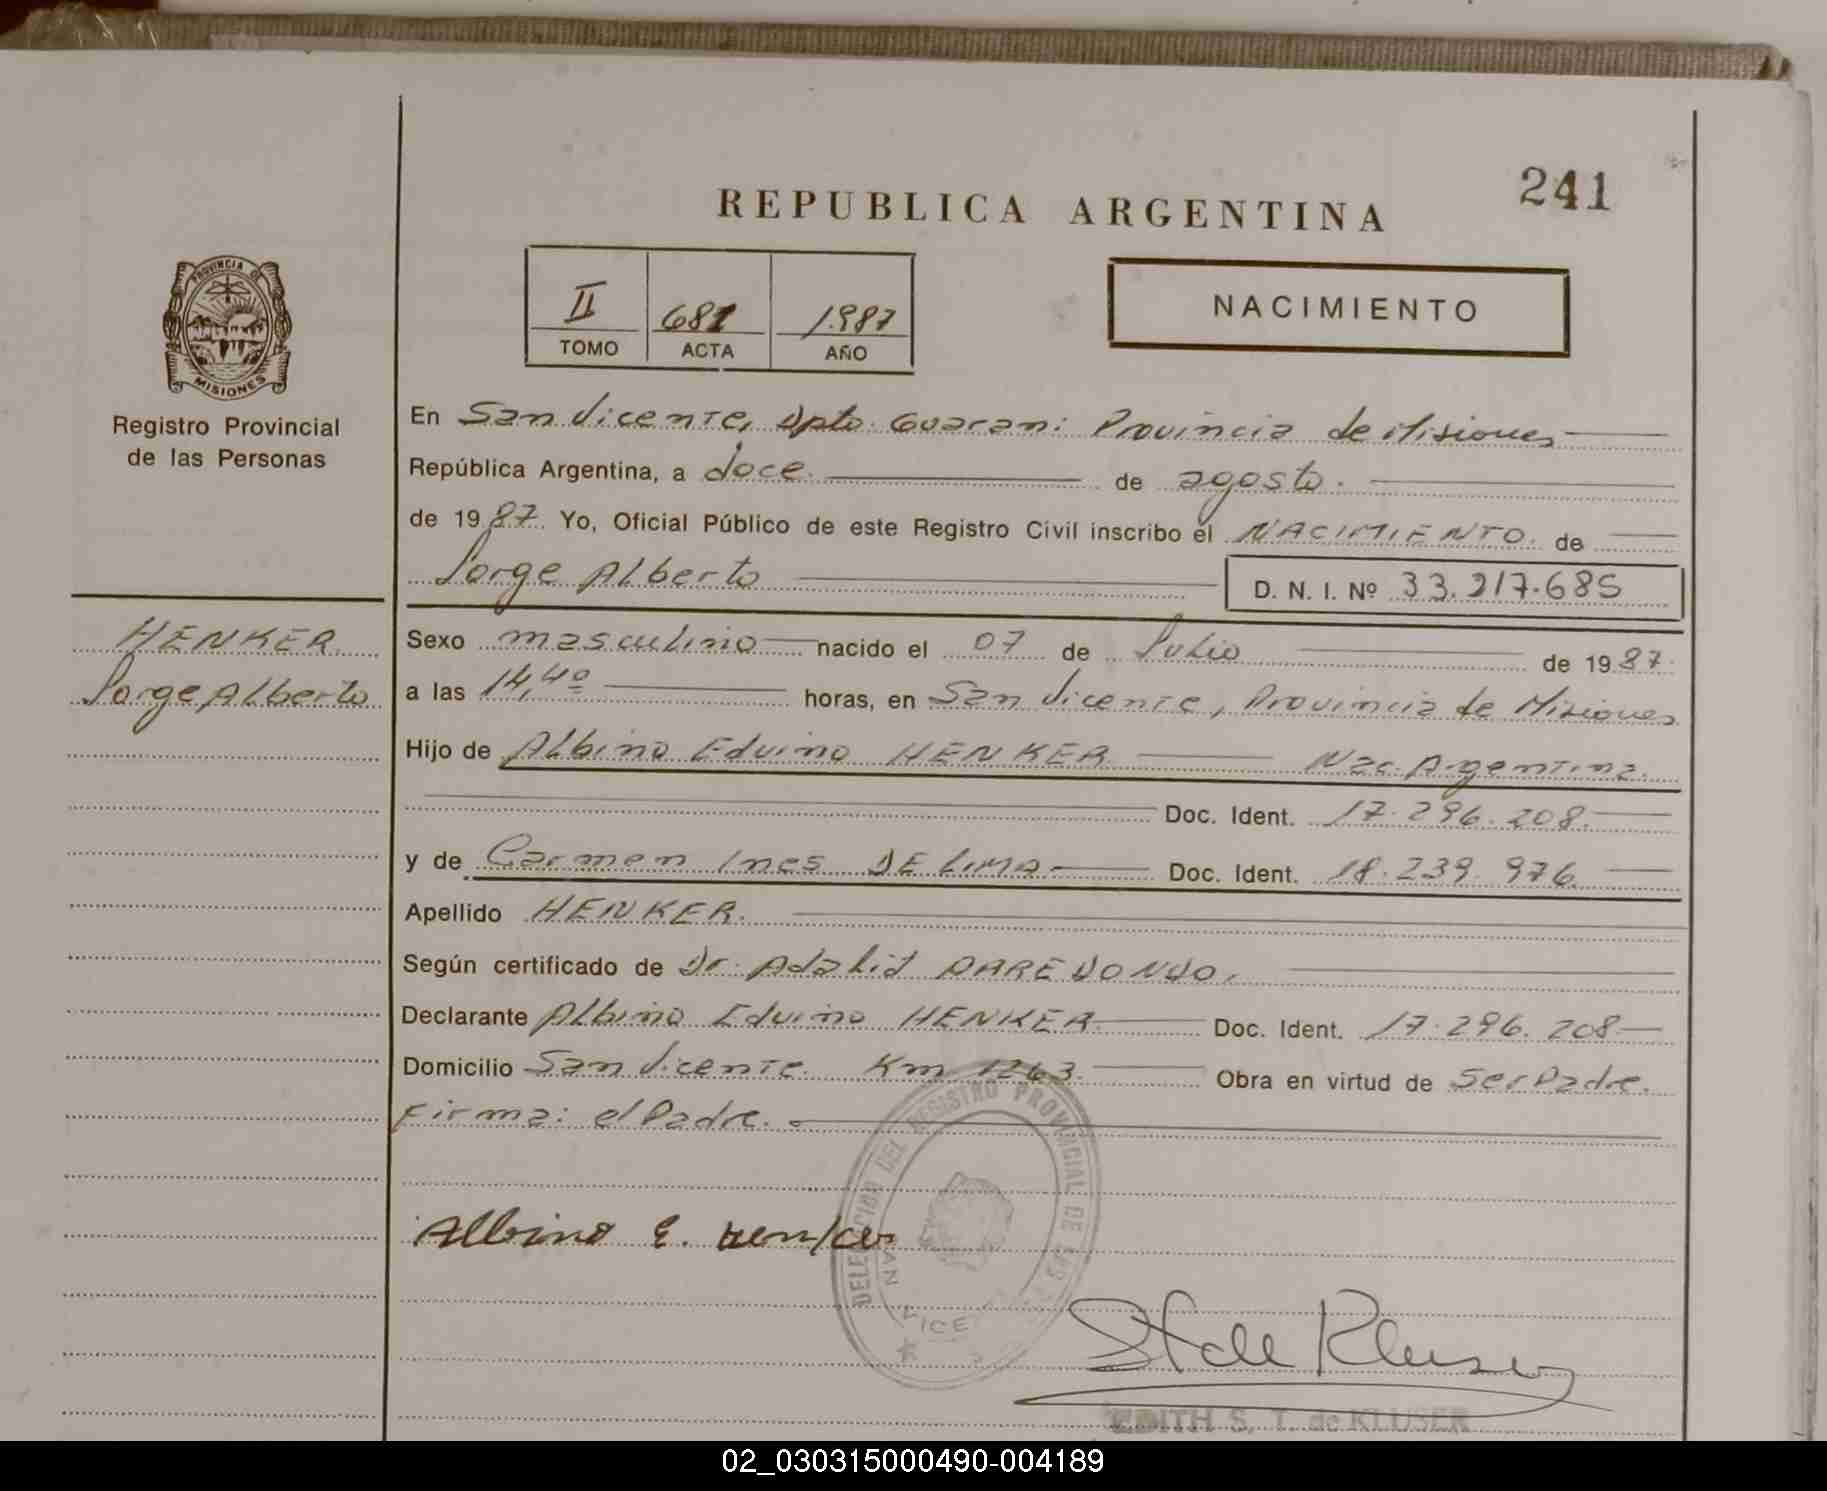 241
REPUBLICA ARGENTINA
II 681 1987
TOMO ACTA AÑO
NACIMIENTO
PROVINCIA DE
MISIONES
Registro Provincial
de las Personas
En San Vicente, Dpto. Guarani Provincia de Misiones
República Argentina, a doce. de agosto.
de 1987. Yo, Oficial Público de este Registro Civil inscribo el NACIMIENTO. de
Jorge Alberto D. N. I. Nº 33.217.685
HENKER
Jorge Alberto
Sexo masculino nacido el 07 de Julio de 1987.
a las 14,40 horas, en San Vicente, Provincia de Misiones
Hijo de Albino Eduino HENKER Nac. Argentina.
Doc. Ident. 17.296.208.
y de Carmen Ines DE LIMA Doc. Ident. 18.239.976.
Apellido HENKER.
Según certificado de Dr. Adalid ARREDONDO.
Declarante Albino Eduino HENKER Doc. Ident. 17.296.208
Domicilio San Vicente Km 1263. Obra en virtud de Ser Padre.
Firma: el Padre.
DELEGACION DEL REGISTRO PROVINCIAL DE LAS
SAN VICENTE
Albino E. Henker
St de Kluser
EDITH S. T. de KLUSER
02_030315000490-004189